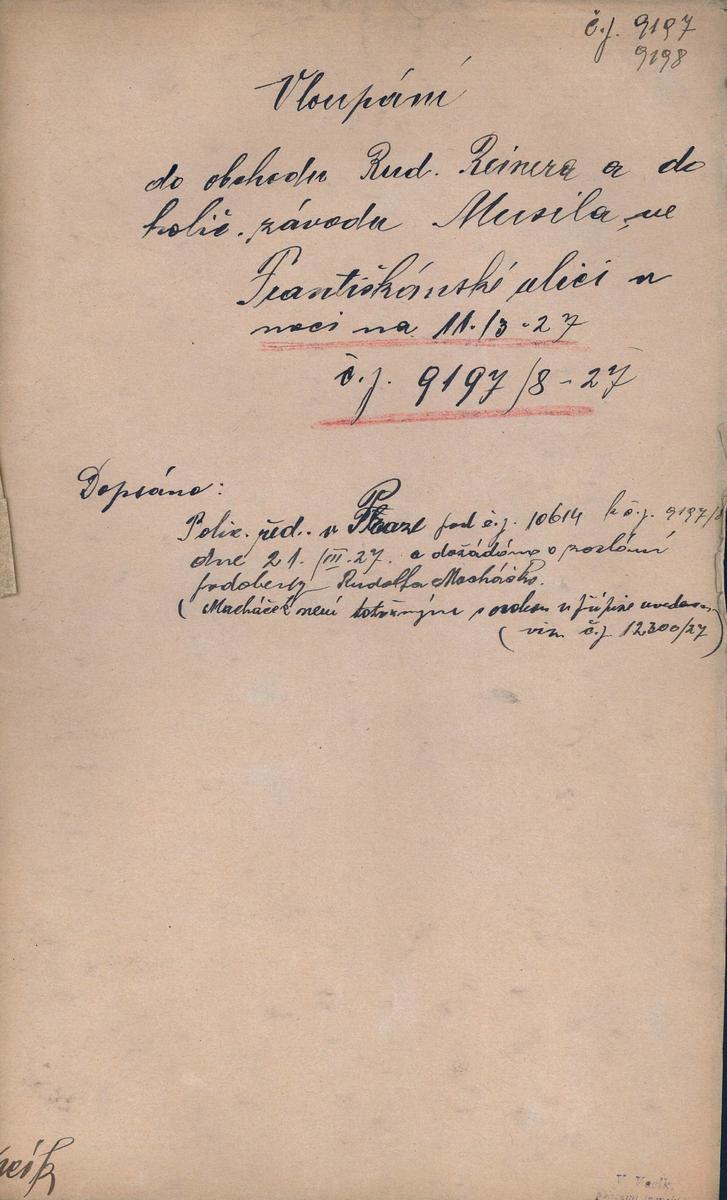 č.j. 9197
9198
Vloupání
do obchodu Rud. Reinera a do
holič. závodu Musila, ve
Františkánské ulici v
noci na 11./3.-27
č.j. 9197/8-27
Dopsáno:
Polic. řed. v Praze pod č.j. 10614 k č.j. 9197/8
dne 21./III.27. a dožádáno o zaslání
podobenky Rudolfa Macháčka.
(Macháček není totožným s osobou v přípise uvedenou
(viz. č.j. 12300/27)
V. Vacík